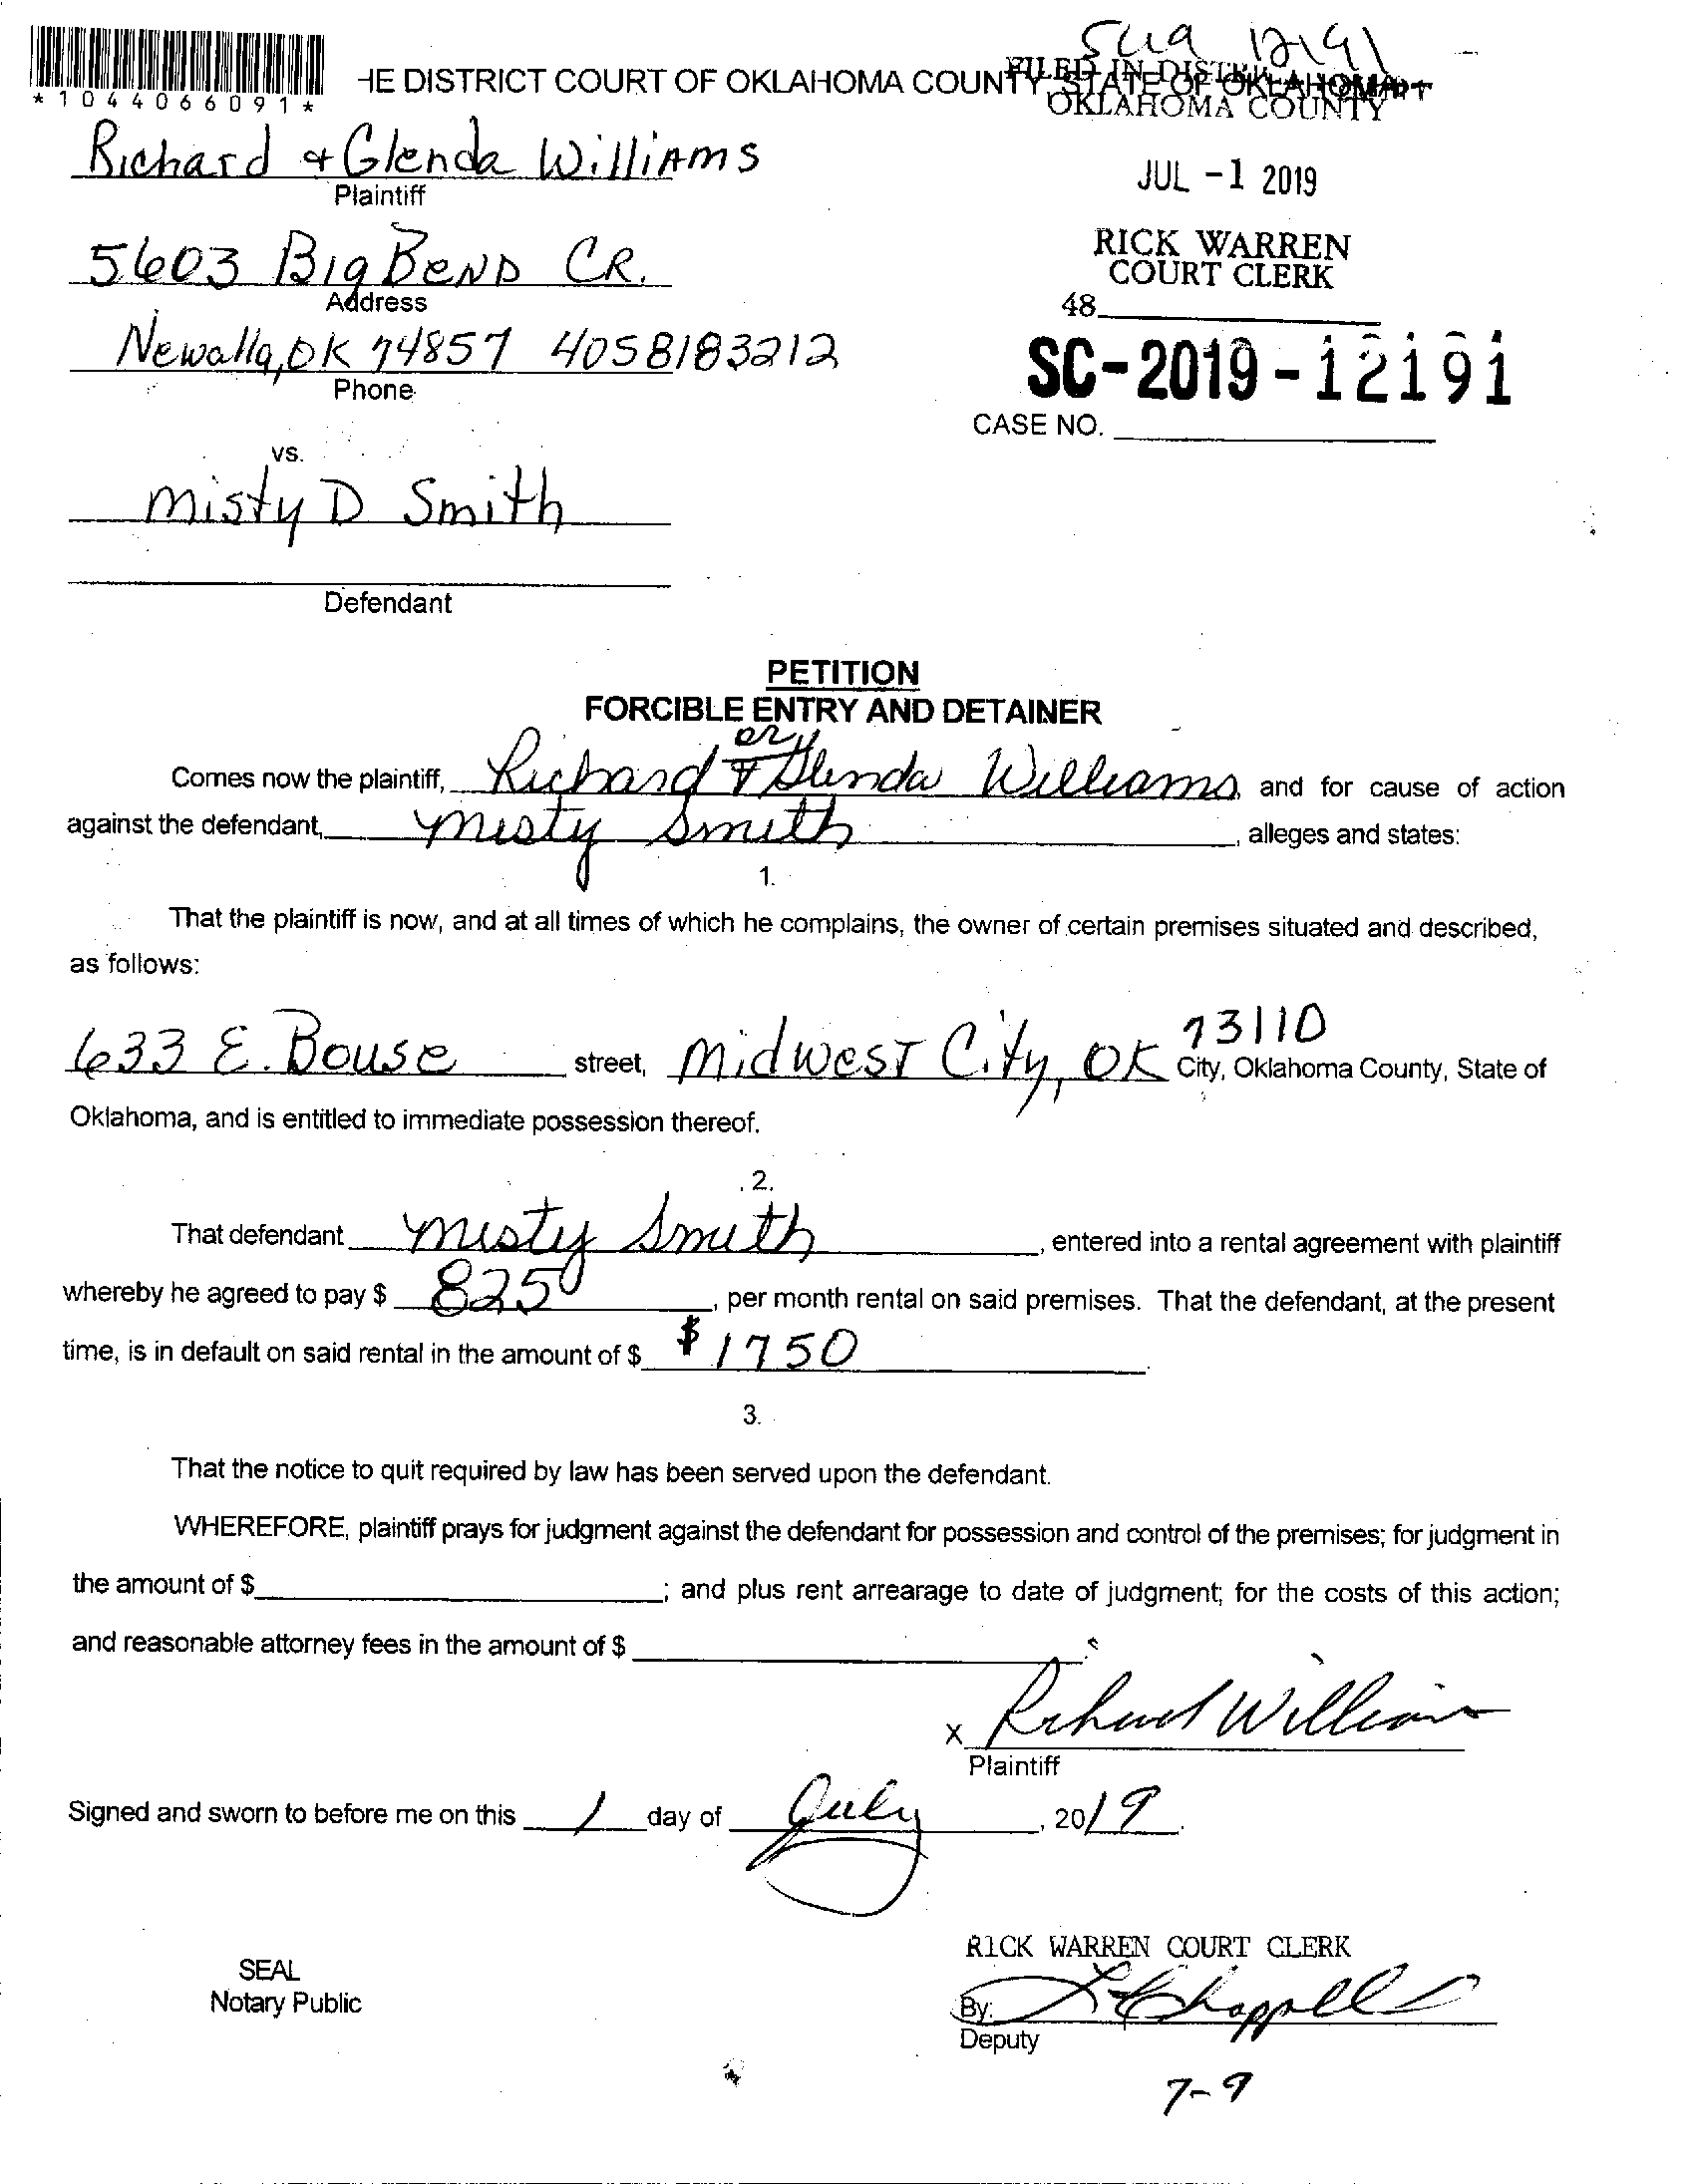 Sua 12191
*1044066091*
HE DISTRICT COURT OF OKLAHOMA COUNTY, STATE OF OKLAHOMA
FILED IN DISTRICT COURT
OKLAHOMA COUNTY
Richard & Glenda Williams
Plaintiff
JUL -1 2019
5603 Big Bend CR.
Address
RICK WARREN
COURT CLERK
48
Newalla, OK 74857 4058183212
Phone
SC-2019-12191
CASE NO.
vs.
Misty D Smith
Defendant
PETITION
FORCIBLE ENTRY AND DETAINER
or
Comes now the plaintiff, Richard & Glenda Williams, and for cause of action
against the defendant, Misty Smith, alleges and states:
1.
That the plaintiff is now, and at all times of which he complains, the owner of certain premises situated and described,
as follows:
633 E. Bouse street, Midwest City, OK 73110 City, Oklahoma County, State of
Oklahoma, and is entitled to immediate possession thereof.
2.
That defendant Misty Smith, entered into a rental agreement with plaintiff
whereby he agreed to pay $ 825, per month rental on said premises. That the defendant, at the present
time, is in default on said rental in the amount of $ $1750.
3.
That the notice to quit required by law has been served upon the defendant.
WHEREFORE, plaintiff prays for judgment against the defendant for possession and control of the premises; for judgment in
the amount of $; and plus rent arrearage to date of judgment; for the costs of this action;
and reasonable attorney fees in the amount of $.
X Richard Williams
Plaintiff
Signed and sworn to before me on this 1 day of July, 2019.
RICK WARREN COURT CLERK
SEAL
Notary Public
By: Chappell
Deputy
7-9